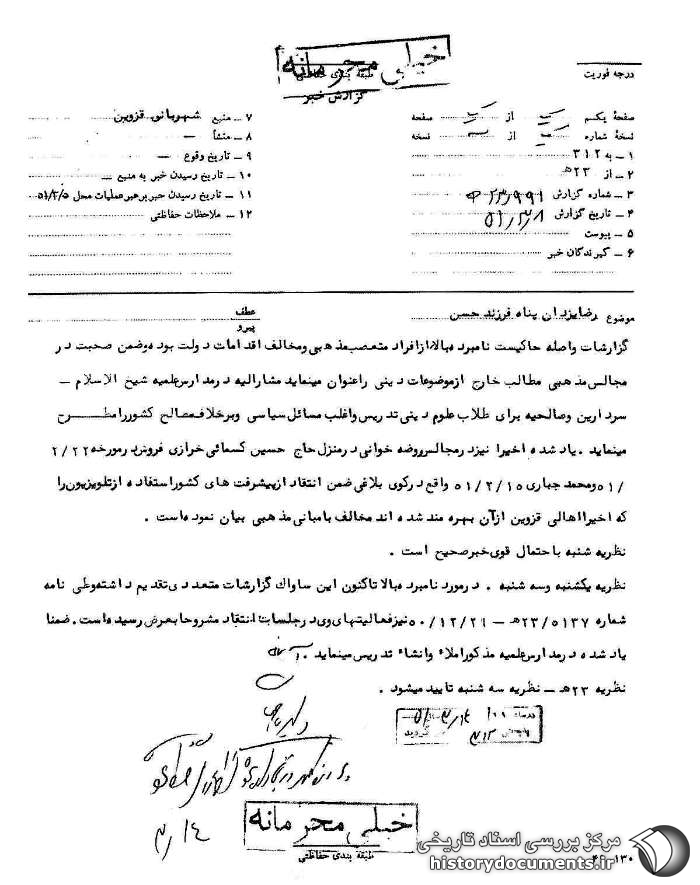 خیلی محرمانه
طبقه بندی حفاظتی
گزارش خبر
درجه فوریت
صفحهٔ یکم از صفحه
نسخهٔ شماره از نسخه
۱ ــ به ۳۱۲
۲ ــ از ۲۳ه‍
۳ ــ شماره گزارش
۴ ــ تاریخ گزارش ۵۱/۳/۸
۵ ــ پیوست
۶ ــ گیرندگان خبر
۷ ــ منبع شهربانی قزوین
۸ ــ منشأ
۹ ــ تاریخ وقوع
۱۰ ــ تاریخ رسیدن خبر به منبع
۱۱ ــ تاریخ رسیدن خبر برهبر عملیات محل ۵۱/۳/۵
۱۲ ــ ملاحظات حفاظتی
موضوع رضا یزدان پناه فرزند حسن
عطف
پیرو
گزارشات واصله حاکیست نامبرده بالا از افراد متعصب مذهبی و مخالف اقدامات دولت بوده و ضمن صحبت در
مجالس مذهبی مطالب خارج از موضوعات دینی را عنوان مینماید مشارالیه در مدارس علمیه شیخ الاسلام ــ
سردارین و صالحیه برای طلاب علوم دینی تدریس و اغلب مسائل سیاسی و برخلاف مصالح کشور را مطرح
مینماید . یاد شده اخیرا نیز در مجالس روضه خوانی در منزل حاج حسین کسمائی خرازی فروش در مورخه ۲/۲۲
/۵۱ و محمد جباری ۵۱/۲/۱۵ واقع در کوی بلاغی ضمن انتقاد از پیشرفت های کشور استفاده از تلویزیون را
که اخیرا اهالی قزوین از آن بهره مند شده اند مخالف با مبانی مذهبی بیان نموده است .
نظریه شنبه با احتمال قوی خبر صحیح است .
نظریه یکشنبه و سه شنبه . در مورد نامبرده بالا تاکنون این ساواک گزارشات متعددی تقدیم داشته و طی نامه
شماره ۲۳/۵۱۳۷ه‍ ــ ۵۰/۱۲/۲۱ نیز فعالیتهای وی در جلسات انتقاد مشروحا بعرض رسیده است . ضمنا
یاد شده در مدارس علمیه مذکور املاء و انشاء تدریس مینماید .
نظریه ۲۳ه‍ ــ نظریه سه شنبه تایید میشود .
۳/۱٤
خیلی محرمانه
طبقه بندی حفاظتی
مرکز بررسی اسناد تاریخی
historydocuments.ir